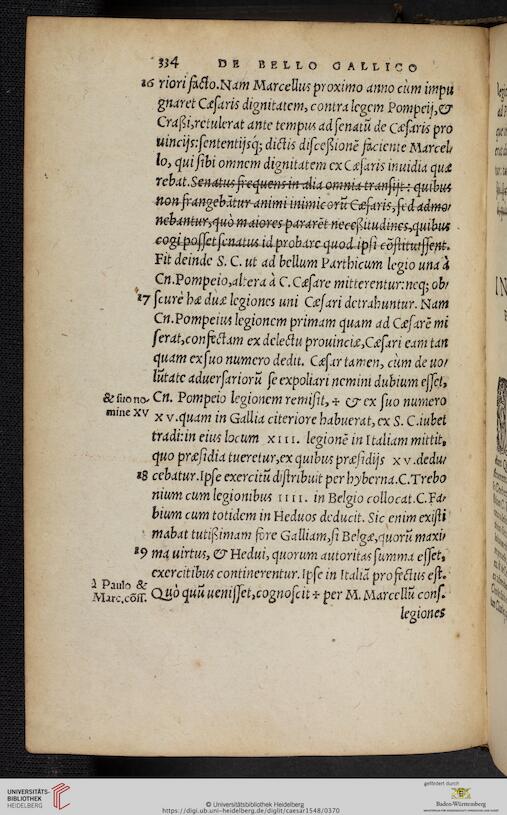 334 DE BELLO GALLICO
16 riori facto. Nam Marcellus proximo anno cùm impu
gnaret Cæsaris dignitatem, contra legem Pompeij, &
Craßi, retulerat ante tempus ad senatū de Cæsaris pro
uincijs: sententijsq; dictis discessionē faciente Marcel,
lo, qui sibi omnem dignitatem ex Cæsaris inuidia quæ
rebat. Senatus frequens in alia omnia transijt: quibus
non frangebātur animi inimicorū Cæsaris, sed admo,
nebantur, quò maiores pararēt neceßitudines, quibus
cogi posset senatus id probare quod ipsi cōstituissent.
Fit deinde S. C. ut ad bellum Parthicum legio una à
Cn. Pompeio, altera à C. Cæsare mitterentur: neq; ob,
17 scurè hæ duæ legiones uni Cæsari detrahuntur. Nam
Cn. Pompeius legionem primam quam ad Cæsarē mi
serat, confectam ex delectu prouinciæ, Cæsari eam tan
quam ex suo numero dedit. Cæsar tamen, cùm de uo,
lūtate aduersariorū se expoliari nemini dubium esset,
& suo no- Cn. Pompeio legionem remisit, + & ex suo numero
mine XV XV. quam in Gallia citeriore habuerat, ex S. C. iubet
tradi: in eius locum XIII. legionē in Italiam mittit,
quo præsidia tueretur, ex quibus præsidijs XV. dedu,
18 cebatur. Ipse exercitū distribuit per hyberna. C. Trebo
nium cum legionibus IIII. in Belgio collocat. C. Fa,
bium cum totidem in Heduos deducit. Sic enim existi
mabat tutißimam fore Galliam, si Belgæ, quorū maxi,
19 ma uirtus, & Hedui, quorum autoritas summa esset,
exercitibus continerentur. Ipse in Italiā profectus est.
à Paulo & Quò quū uenisset, cognoscit + per M. Marcellū cons.
Marc. cōss.
legiones
UNIVERSITÄTS-
BIBLIOTHEK
HEIDELBERG
© Universitätsbibliothek Heidelberg
https://digi.ub.uni-heidelberg.de/diglit/caesar1548/0370
gefördert durch
Baden-Württemberg